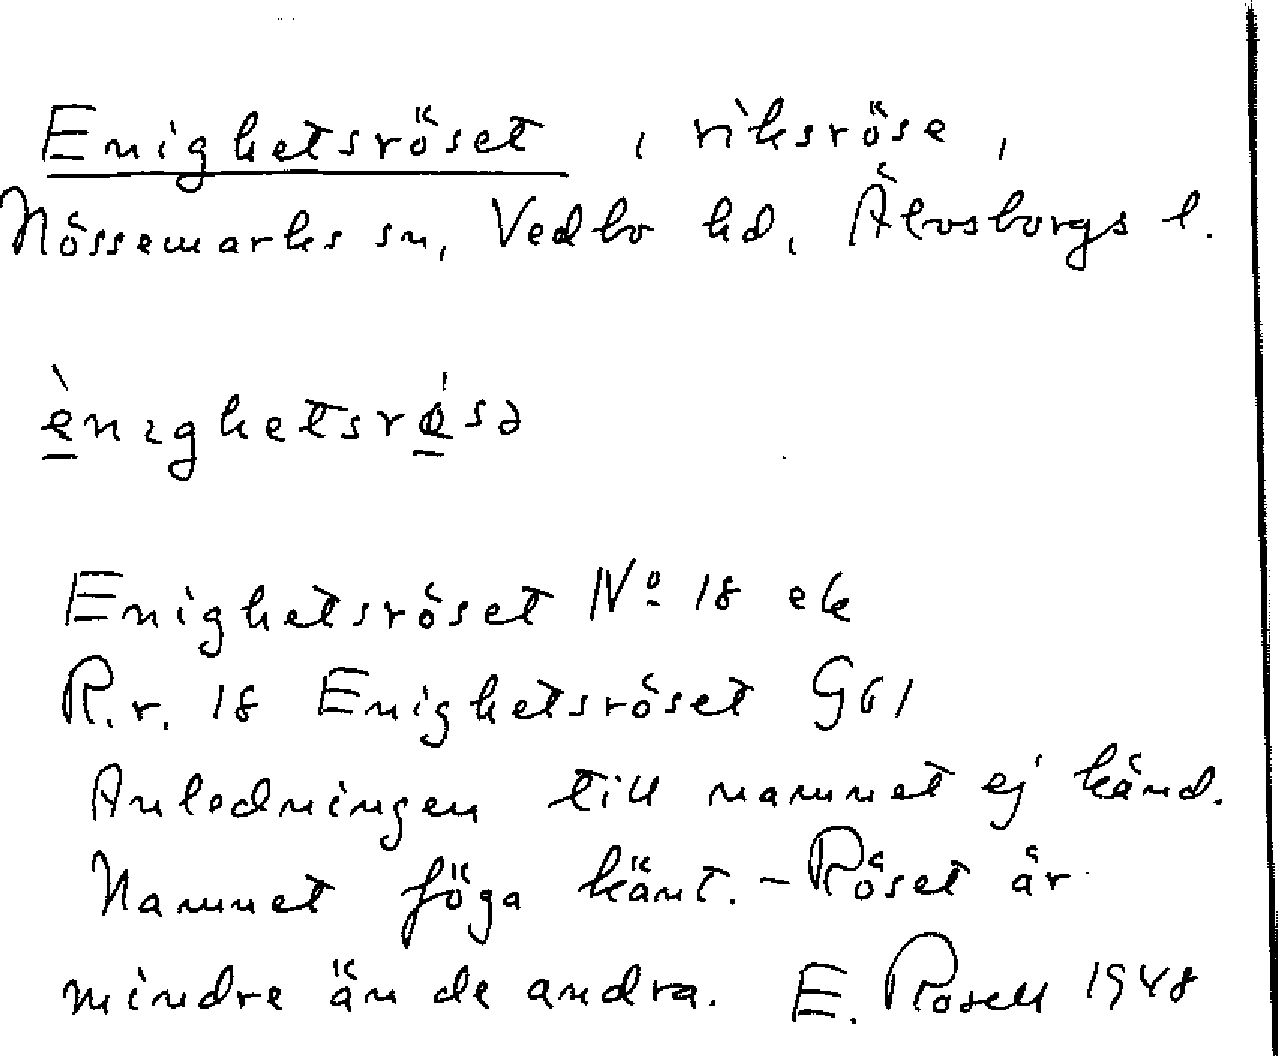 Enighetsröset, riksröse,
Nössemarks sn, Vedbo hd, Älvsborgs l.
ènıghetsrǿsə
Enighetsröset Nº 18 ek
R.r. 18 Enighetsröset G61
Anledningen till namnet ej känd.
Namnet föga känt. - Röset är
mindre än de andra. E. Rosell 1948